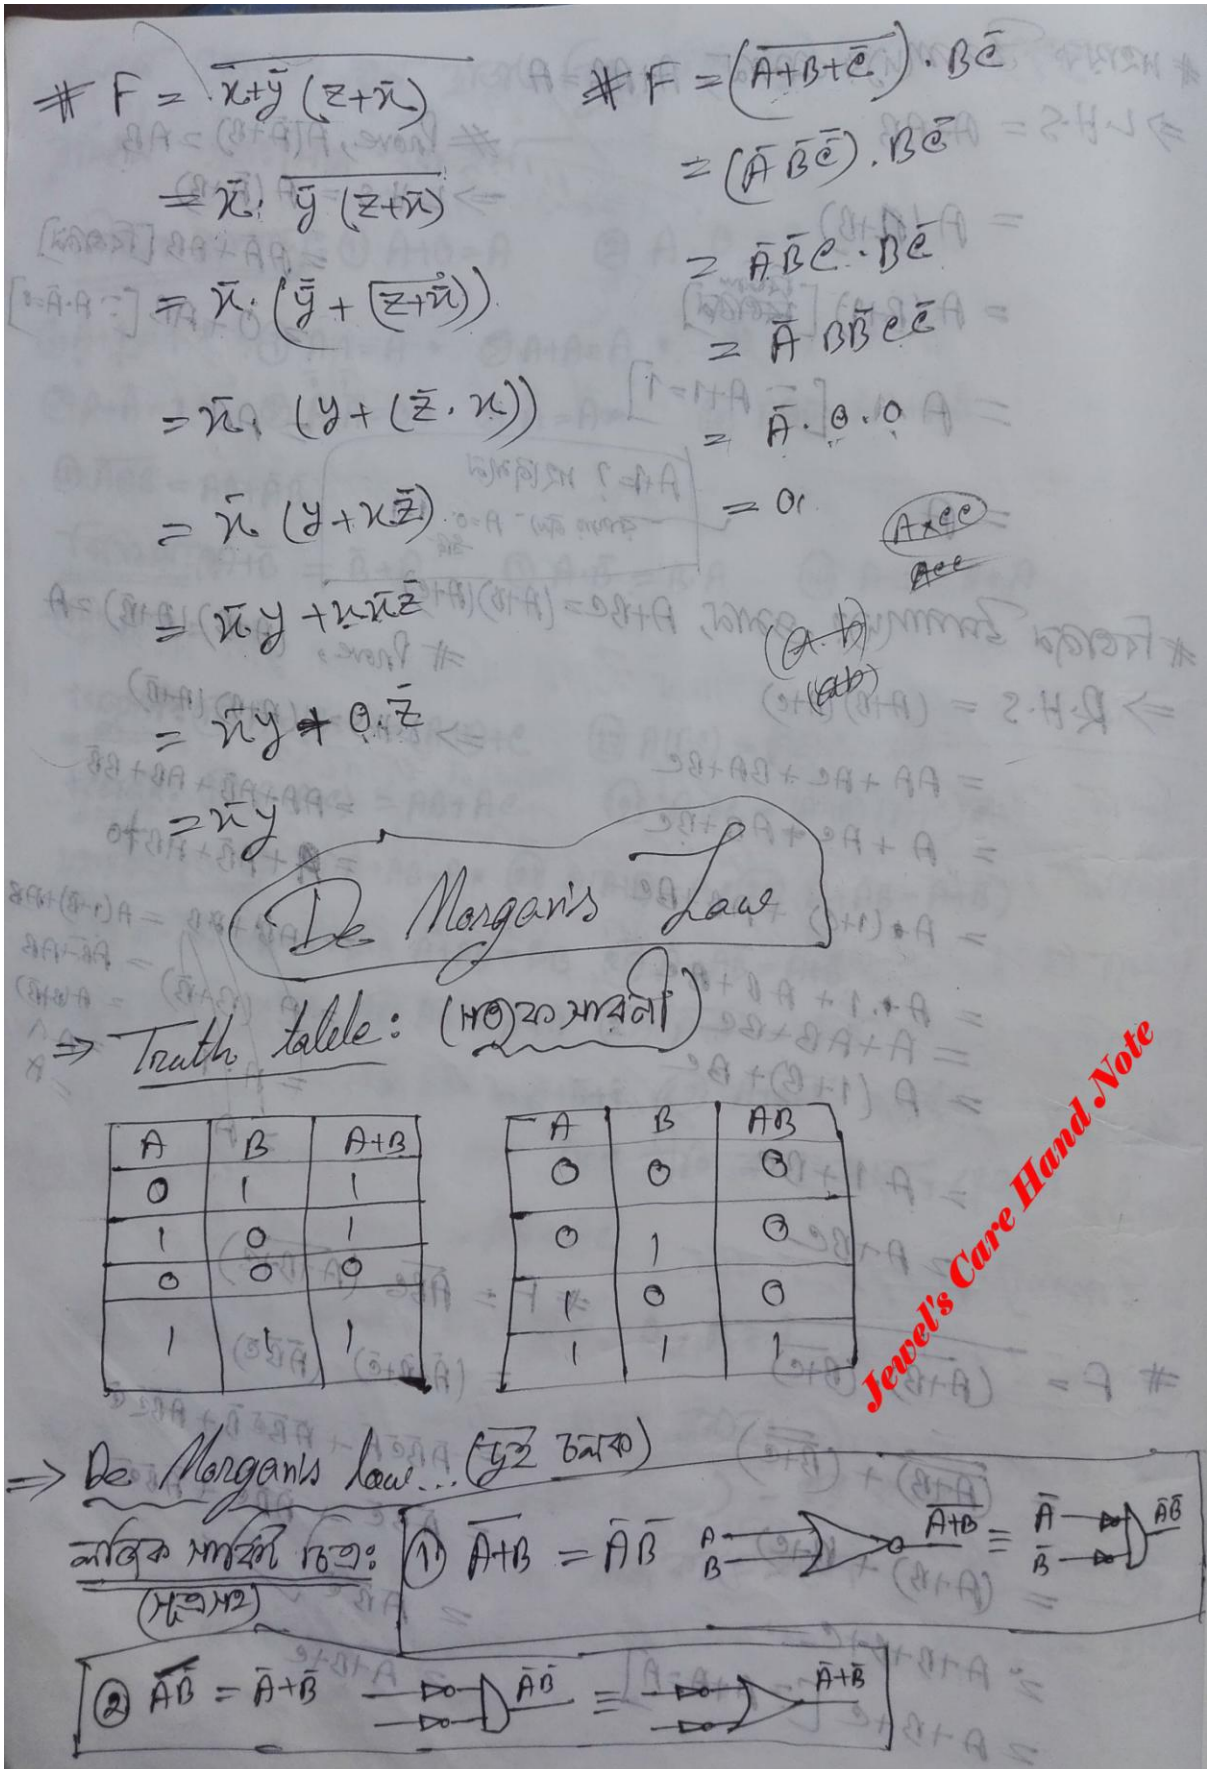 # F = \overline{x+ȳ (z+x̄)}
= x̄. \overline{ȳ (z+x̄)}
= x̄. (y̿ + (\overline{z+x̄}))
= x̄. (y + (z̄ . x))
= x̄ (y + xz̄)
= x̄y + xx̄z̄
= x̄y + 0.z̄
= x̄y
# F = (\overline{A̅+B+C̅}) . BC̅
= (A̅ B̅ C̿) . BC̅
= A̅ B̅ C . BC̅
= A̅ BB̅ CC̅
= A̅ . 0 . 0
= 0
(a.b)
(a+b)
De Morgan's Law
⇒ Truth table: (সত্যক সারনী)
A B A+B
0 1 1
1 0 1
0 0 0
1 1 1
A B AB
0 0 0
0 1 0
1 0 0
1 1 1
Jewel's Care Hand Note
⇒ De Morgan's law... (দুই চলক)
লজিক সার্কিট চিত্র:
(সূত্রসহ)
① \overline{A+B} = A̅ B̅ A B \overline{A+B} ≡ A̅ B̅ A̅B̅
② \overline{AB} = A̅+B̅ A̅B̅ ≡ A̅+B̅